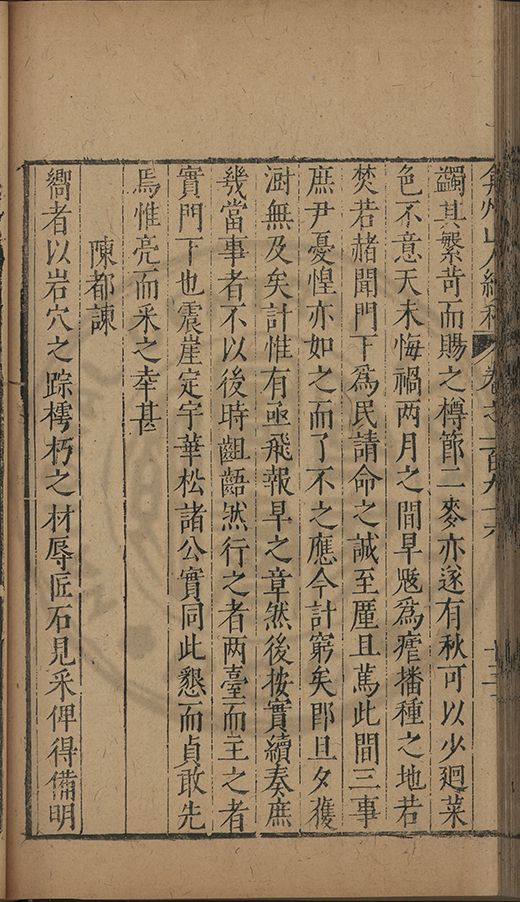 弇州山人續稿 卷之一百九十六 十三
蠲其繁苛而賜之樽節二麥亦遂有秋可以少廻菜
色不意天未悔禍两月之間旱魃爲瘧播種之地若
焚若赭聞門下爲民請命之誠至厪且篤此間三事
庶尹憂惶亦如之而了不之應今計窮矣卽旦夕獲
澍無及矣計惟有亟飛報旱之章然後按實續奏庶
幾當事者不以後時齟齬然行之者两臺而主之者
實門下也震崖定宇華松諸公實同此懇而貞敢先
焉惟亮而采之幸甚
陳都諫
嚮者以岩穴之踪樗朽之材辱匠石見采俾得備明